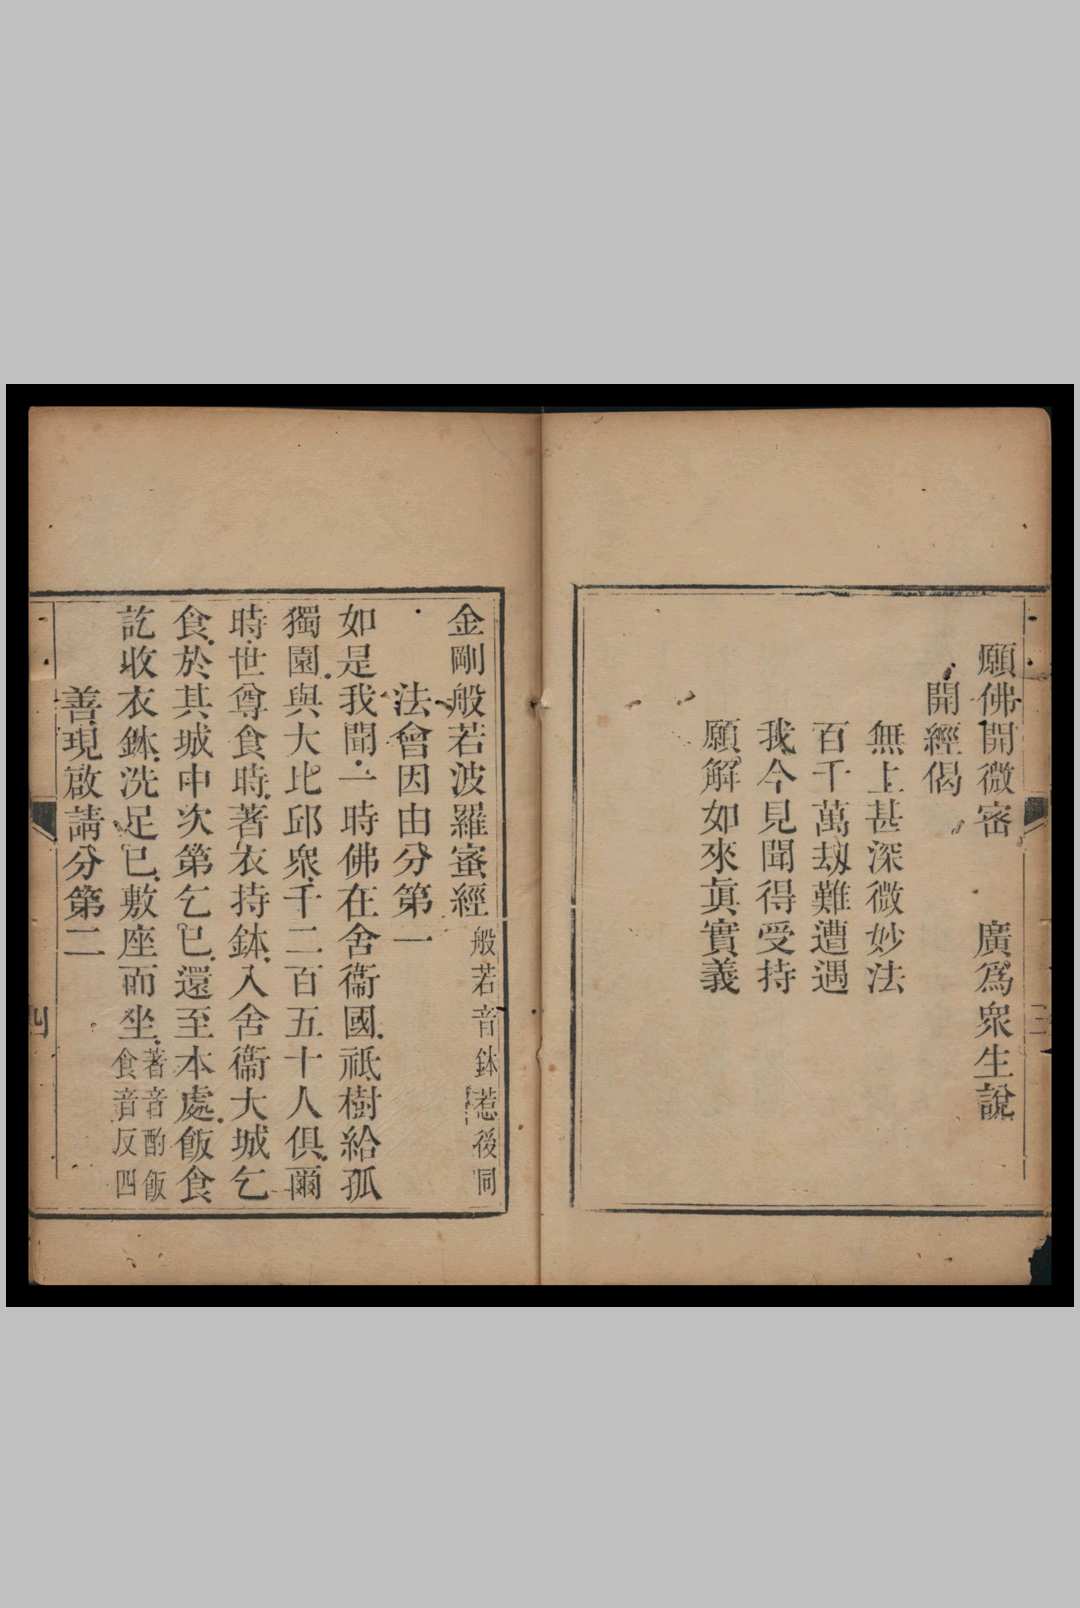 願佛開微密　廣爲衆生說
開經偈
無上甚深微妙法
百千萬劫難遭遇
我今見聞得受持
願解如來眞實義
三
金剛般若波羅蜜經
般若音鉢惹後同
法會因由分第一
如是我聞一時佛在舍衞國祇樹給孤
獨園與大比邱衆千二百五十人俱爾
時世尊食時著衣持鉢入舍衞大城乞
食於其城中次第乞已還至本處飯食
訖收衣鉢洗足已敷座而坐
著音酌飯
食音反四
善現啟請分第二
四